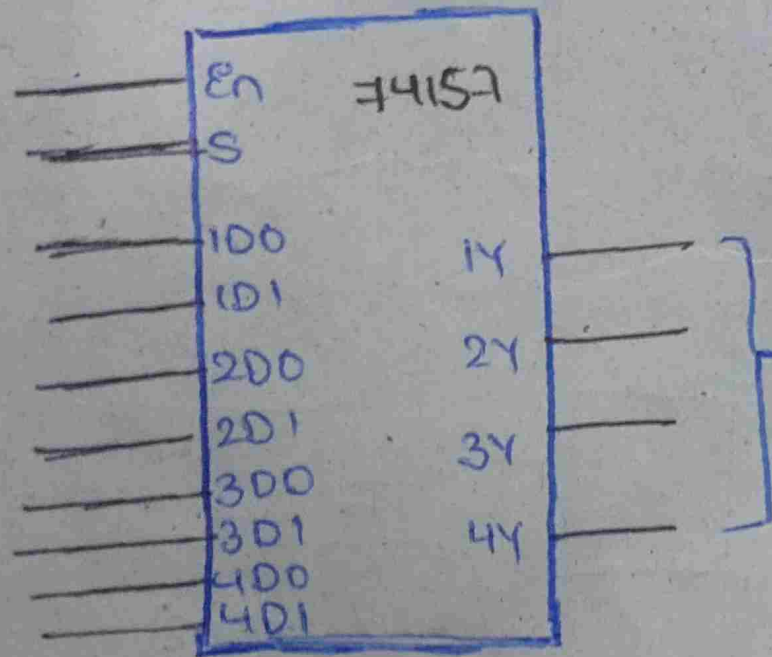 En
74157
S
1D0
1D1
2D0
2D1
3D0
3D1
4D0
4D1
1Y
2Y
3Y
4Y